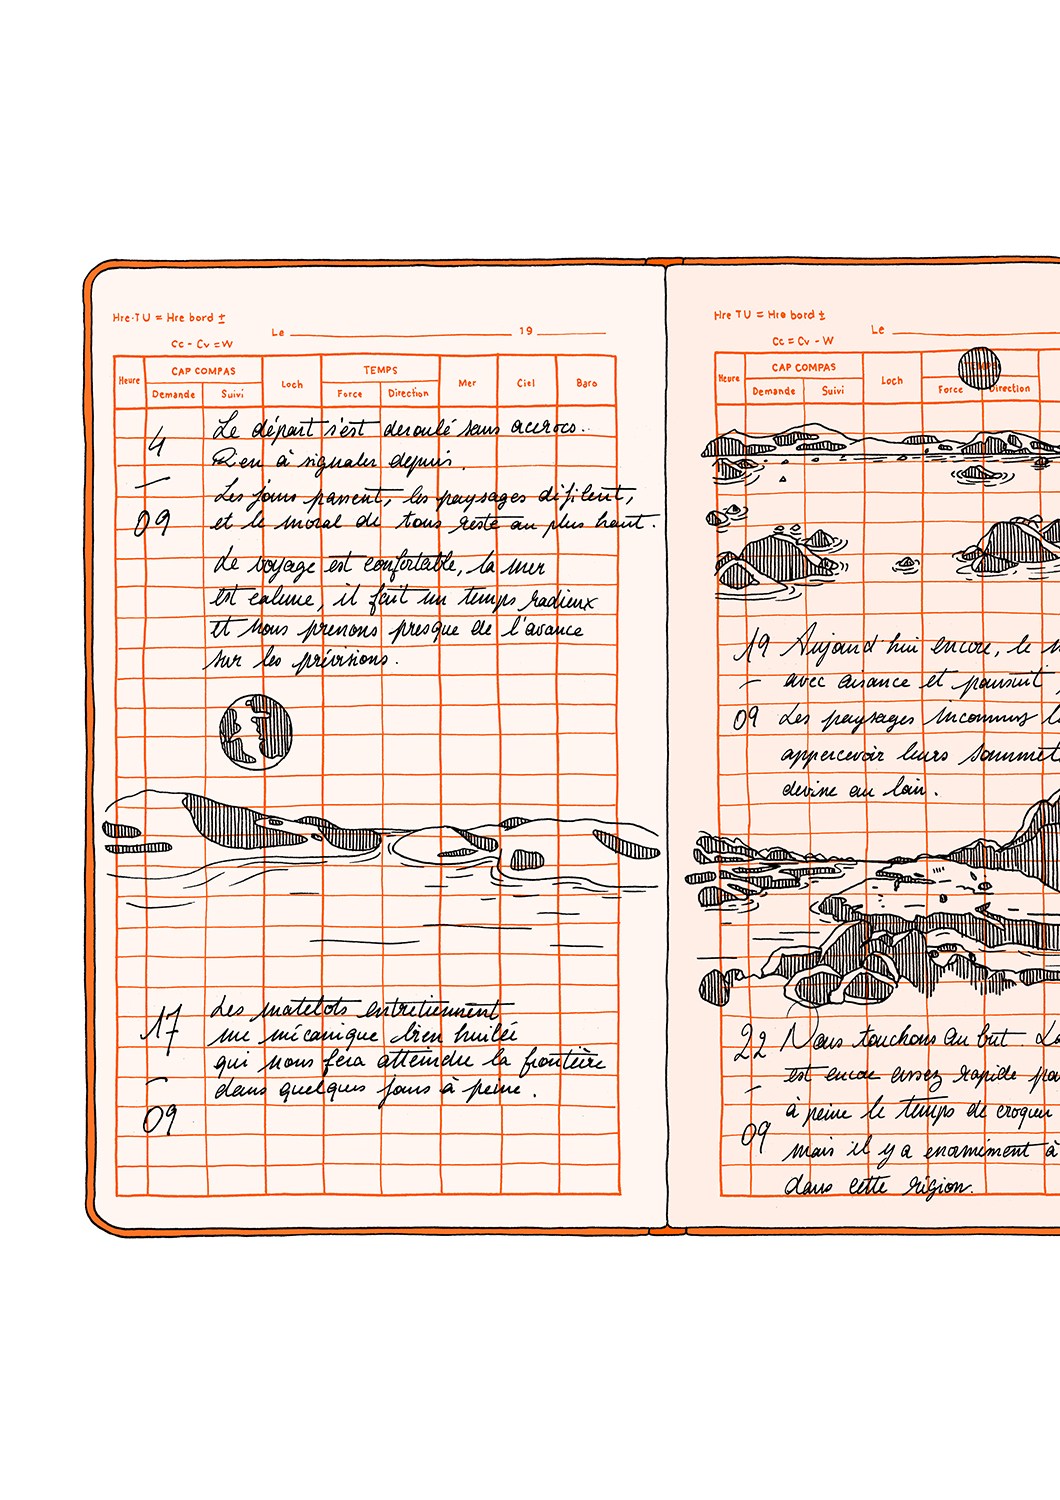 Hre-TU = Hre bord ±
Le 19
Cc - Cv = W
Heure
CAP COMPAS
Demande
Suivi
Loch
TEMPS
Force
Direction
Mer
Ciel
Baro
4
—
09
Le départ s'est deroulé sans accrocs..
Rien à signaler depuis.
Les jours passent, les paysages défilent,
et le moral de tous reste au plus haut.
Le voyage est confortable, la mer
est calme, il fait un temps radieux
et nous prenons presque de l'avance
sur les prévisions.
17
—
09
Les matelots entretiennent
une mécanique bien huilée
qui nous fera atteindre la frontière
dans quelques jours à peine.
Hre TU = Hre bord ±
Le
Cc = Cv - W
Heure
CAP COMPAS
Demande
Suivi
Loch
TEMPS
Force
Direction
19
—
09
Aujourd'hui encore, le
avec aisance et poursuit
Les paysages inconnus
appercevoir leurs sommets
devine au loin.
22
—
09
Nous touchons au but. La
est encore assez rapide
à peine le temps de croquer
mais il y a énormément à
dans cette région.